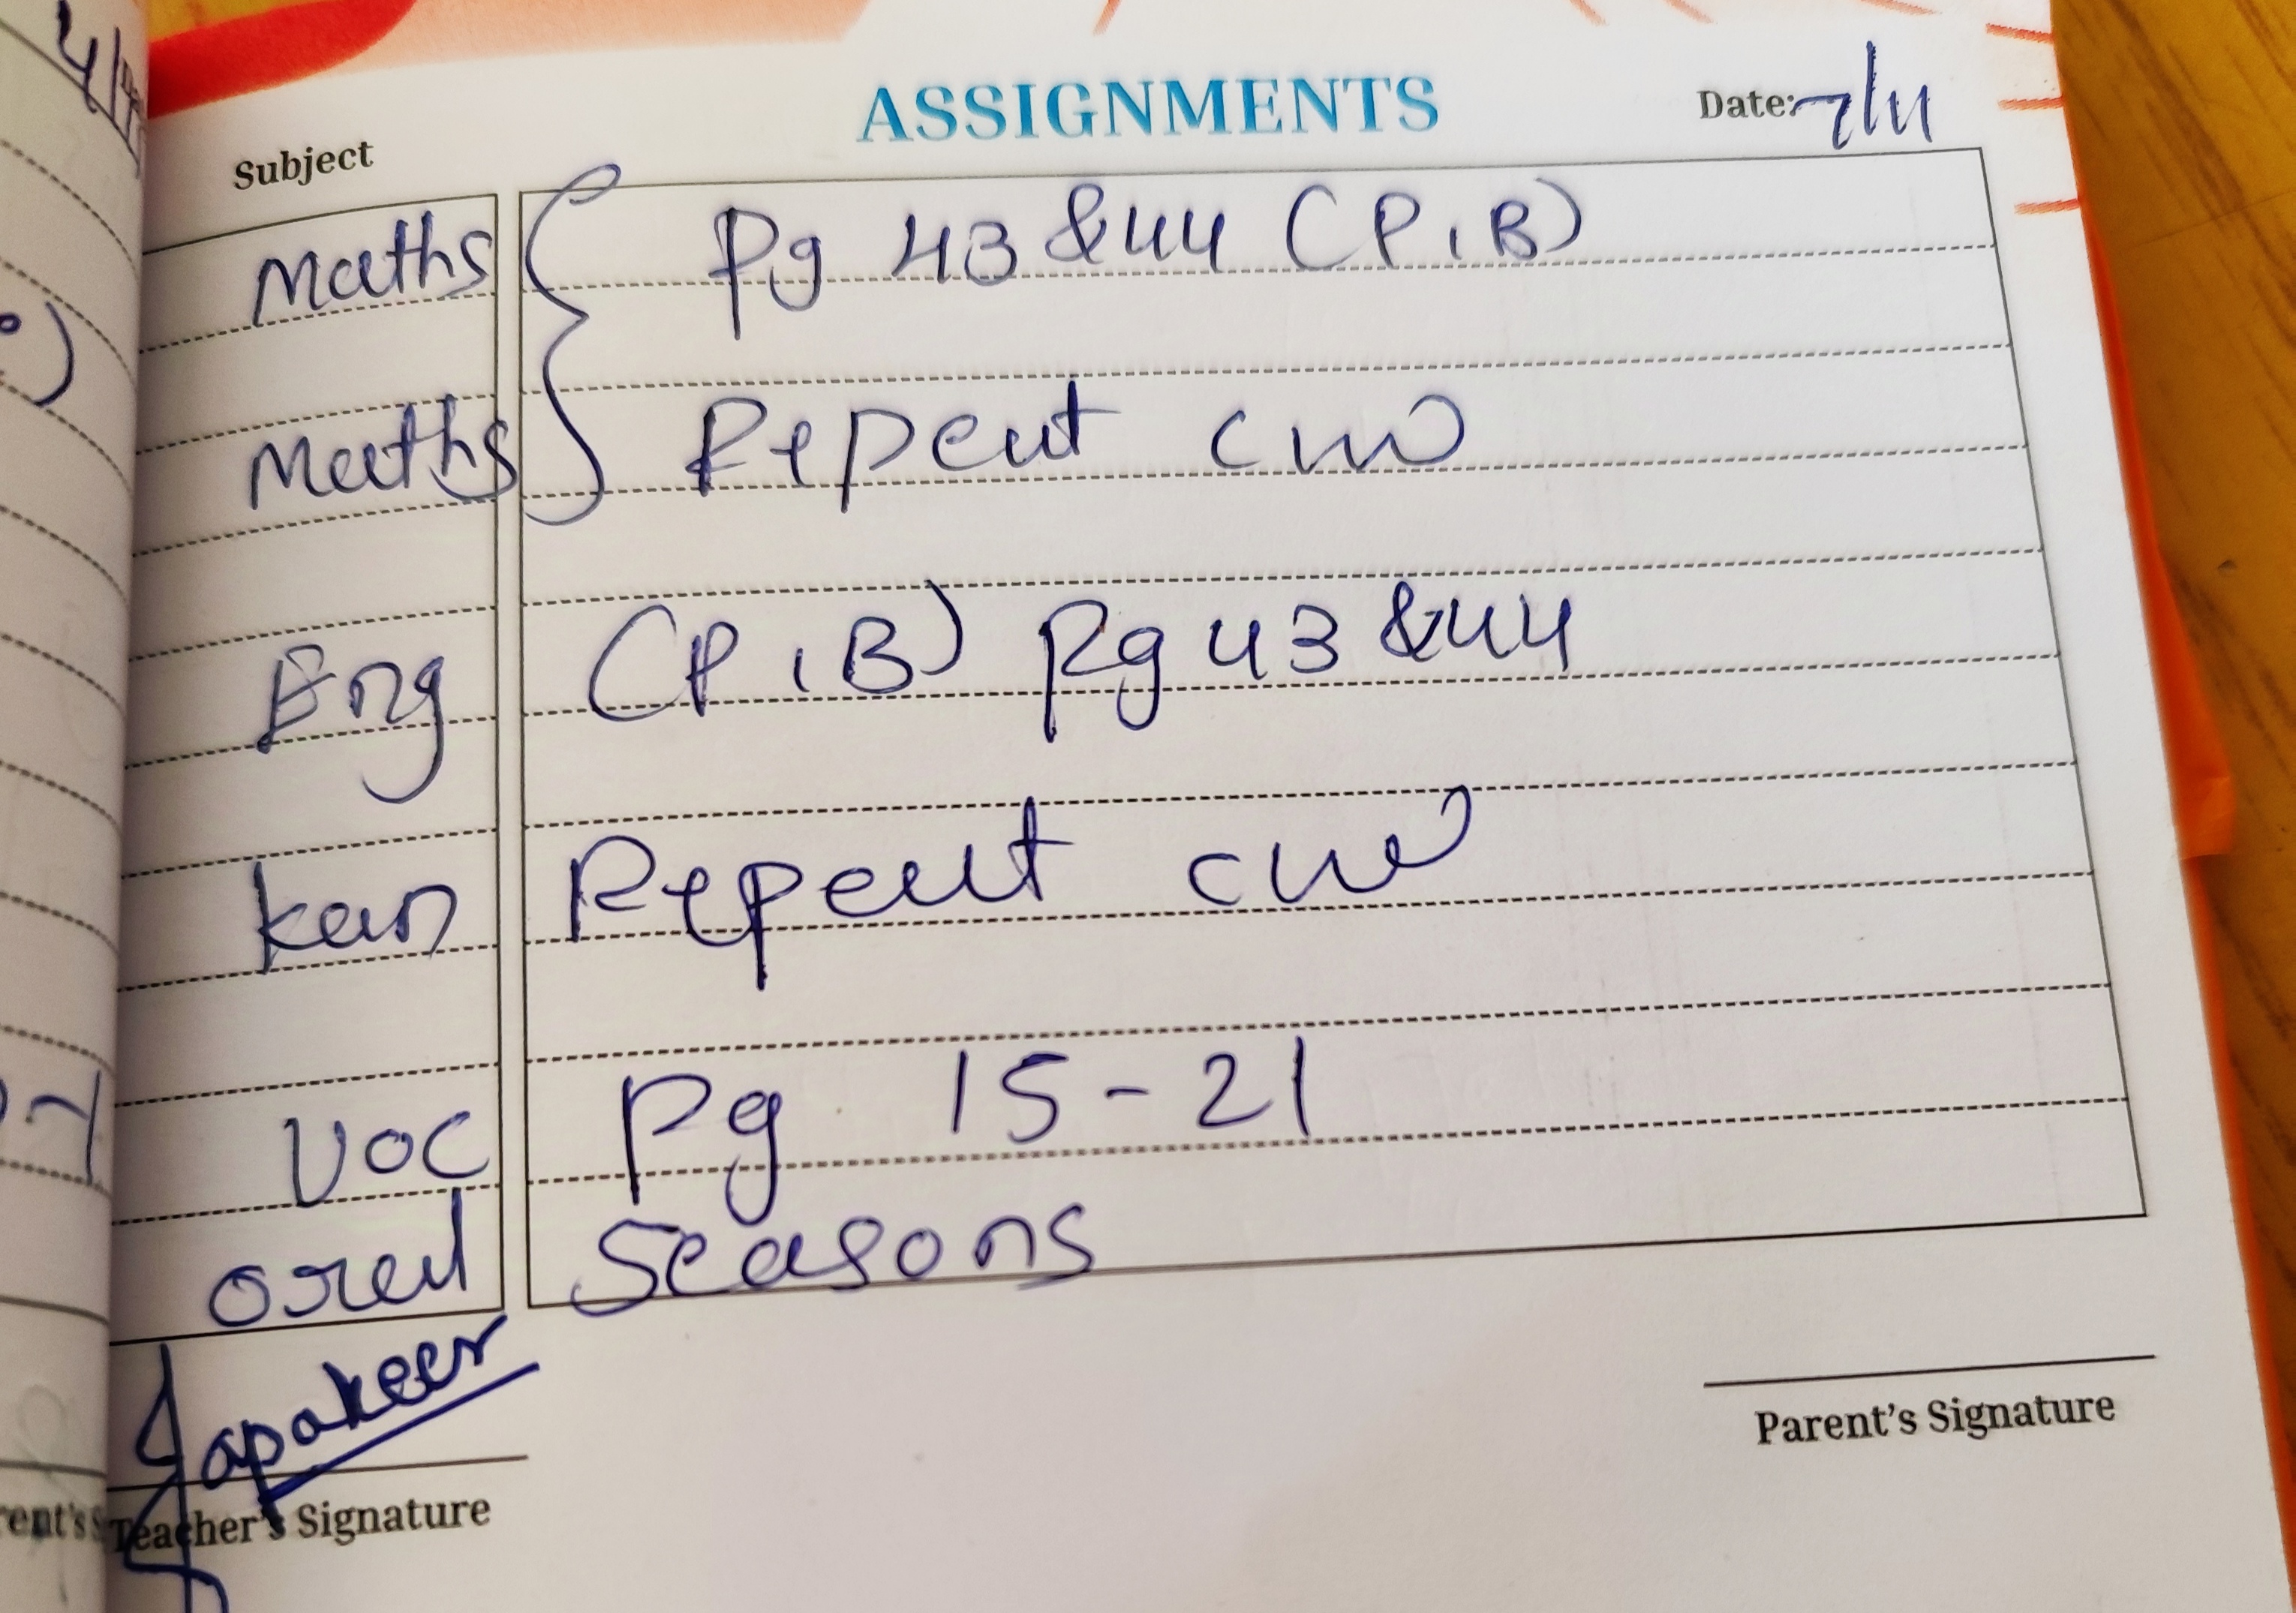 4/11
ASSIGNMENTS
Date: 7/11
Subject
Maths { Pg 43 & 44 (P.B)
Maths Repeat cw
Eng (P.B) Pg 43 & 44
kan Repeat cw
VOC Pg 15-21
oral Seasons
Teacher's Signature
Parent's Signature